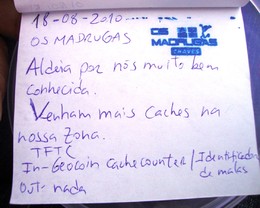 18-08-2010
OS MADRUGAS
OS
MADRUGAS
CHAVES
Aldeia por nós muito bem
conhecida.
Venham mais caches na
nossa zona.
TFTC
In-Geocoin cachecounter / Identificador
de malas
OUT- nada